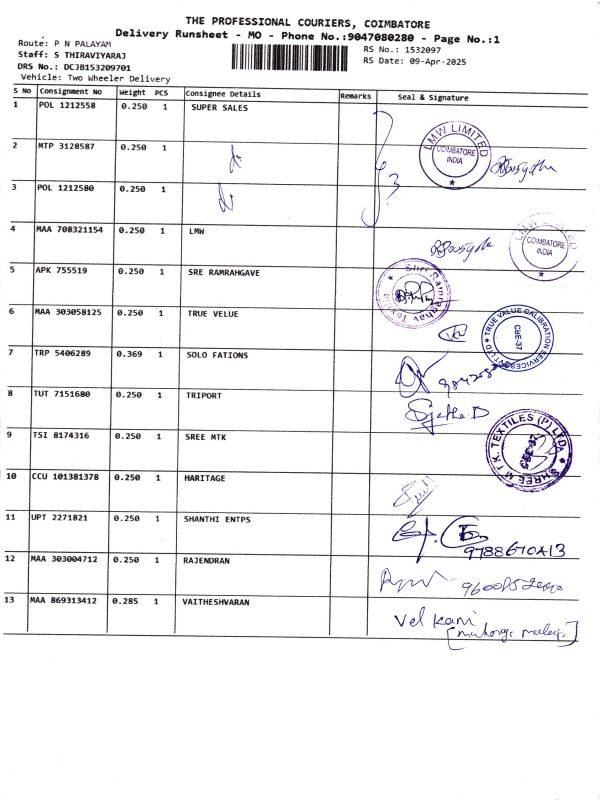 THE PROFESSIONAL COURIERS, COIMBATORE
Delivery Runsheet - MO - Phone No.:9047080280 - Page No.:1
Route: P N PALAYAM
Staff: S THIRAVIYARAJ
DRS No.: DCJB153209701
Vehicle: Two Wheeler Delivery
RS No.: 1532097
RS Date: 09-Apr-2025
S No Consignment No Weight PCS Consignee Details Remarks Seal & Signature
1 POL 1212558 0.250 1 SUPER SALES
2 MTP 3128587 0.250 1
LMW LIMITED
COIMBATORE
INDIA
3 POL 1212580 0.250 1
4 MAA 708321154 0.250 1 LMW
LMW LIMITED
COIMBATORE
INDIA
5 APK 755519 0.250 1 SRE RAMRAHGAVE
6 MAA 303058125 0.250 1 TRUE VELUE
TRUE VALUE CALIBRATION SERVICES PVT LTD
CBE-37
7 TRP 5406289 0.369 1 SOLO FATIONS
8 TUT 7151680 0.250 1 TRIPORT
Sujatha D
9 TSI 8174316 0.250 1 SREE MTK
SHREE M T K TEXTILES (P) LTD
10 CCU 101381378 0.250 1 HARITAGE
11 UPT 2271821 0.250 1 SHANTHI ENTPS
12 MAA 303004712 0.250 1 RAJENDRAN
13 MAA 869313412 0.285 1 VAITHESHVARAN
Vel Kani